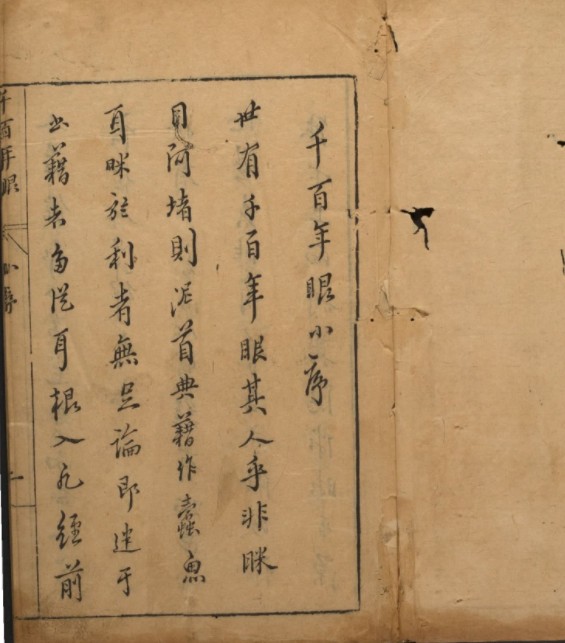 千百年眼小序
世有千百年眼其人乎非眯
目阿堵則泥首典籍作蠹魚
耳眯於利者無足論即迷于
書籍者多從耳根入凡經前
千百年眼 小序 一